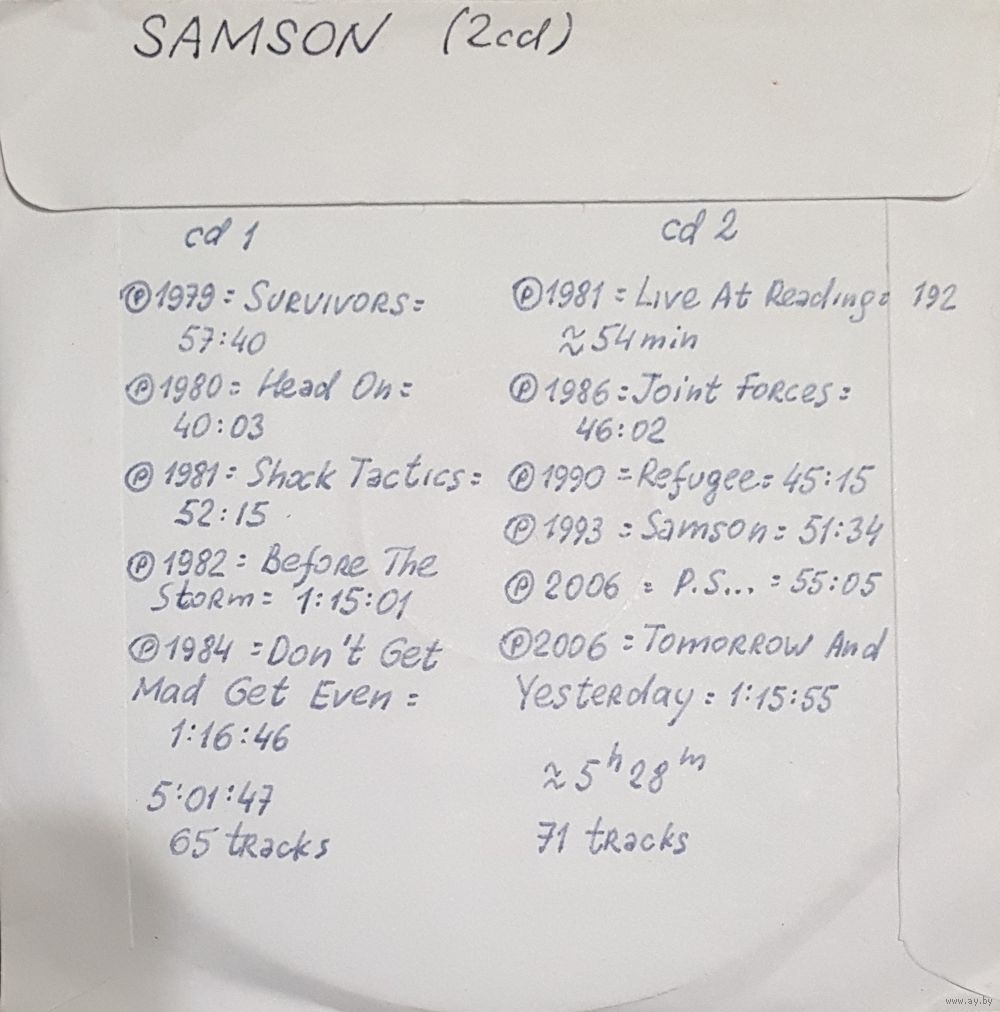 SAMSON (2cd)
cd 1
℗1979 = SURVIVORS =
57:40
℗1980 = Head On =
40:03
℗ 1981 = Shock Tactics =
52:15
℗1982 = Before The
Storm = 1:15:01
℗1984 = Don't Get
Mad Get Even =
1:16:46
5:01:47
65 tracks
cd 2
℗1981 = Live At Reading = 192
≈ 54 min
℗ 1986 = Joint Forces =
46:02
℗1990 = Refugee = 45:15
℗1993 = Samson = 51:34
℗ 2006 = P.S... = 55:05
℗2006 = Tomorrow And
Yesterday = 1:15:55
≈ 5h 28m
71 tracks
www.ay.by